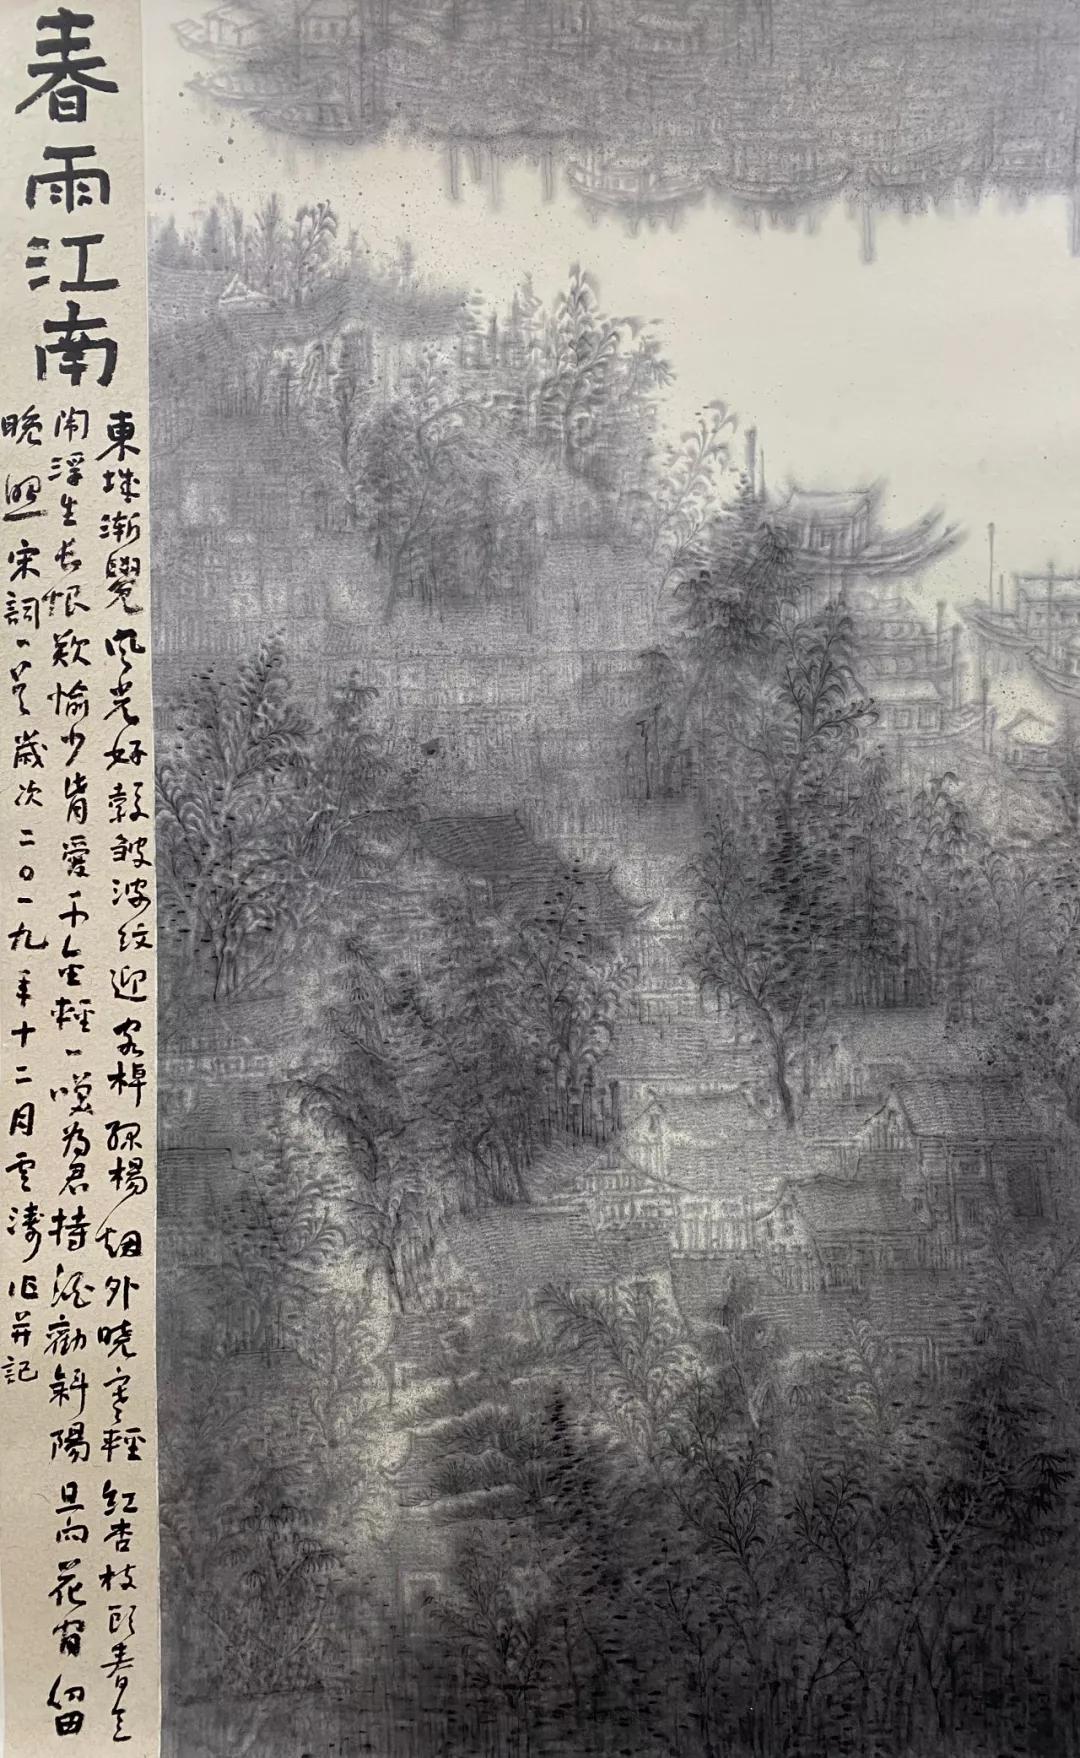 春雨江南
東城漸覺風光好縠皺波紋迎客棹綠楊烟外曉寒輕紅杏枝頭春意
鬧浮生長恨歡愉少肯愛千金輕一笑為君持酒勸斜陽且向花間留
晚照宋詞一首歲次二〇一九年十二月雲濤作并記